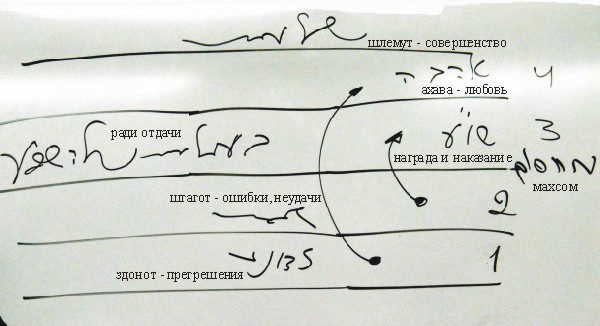 שלמות
шлемут - совершенство
אהבה 4
ахава - любовь
ради отдачи
3
награда и наказание
מחסום
махсом
шгагот - ошибки, неудачи
2
1
здонот - прегрешения